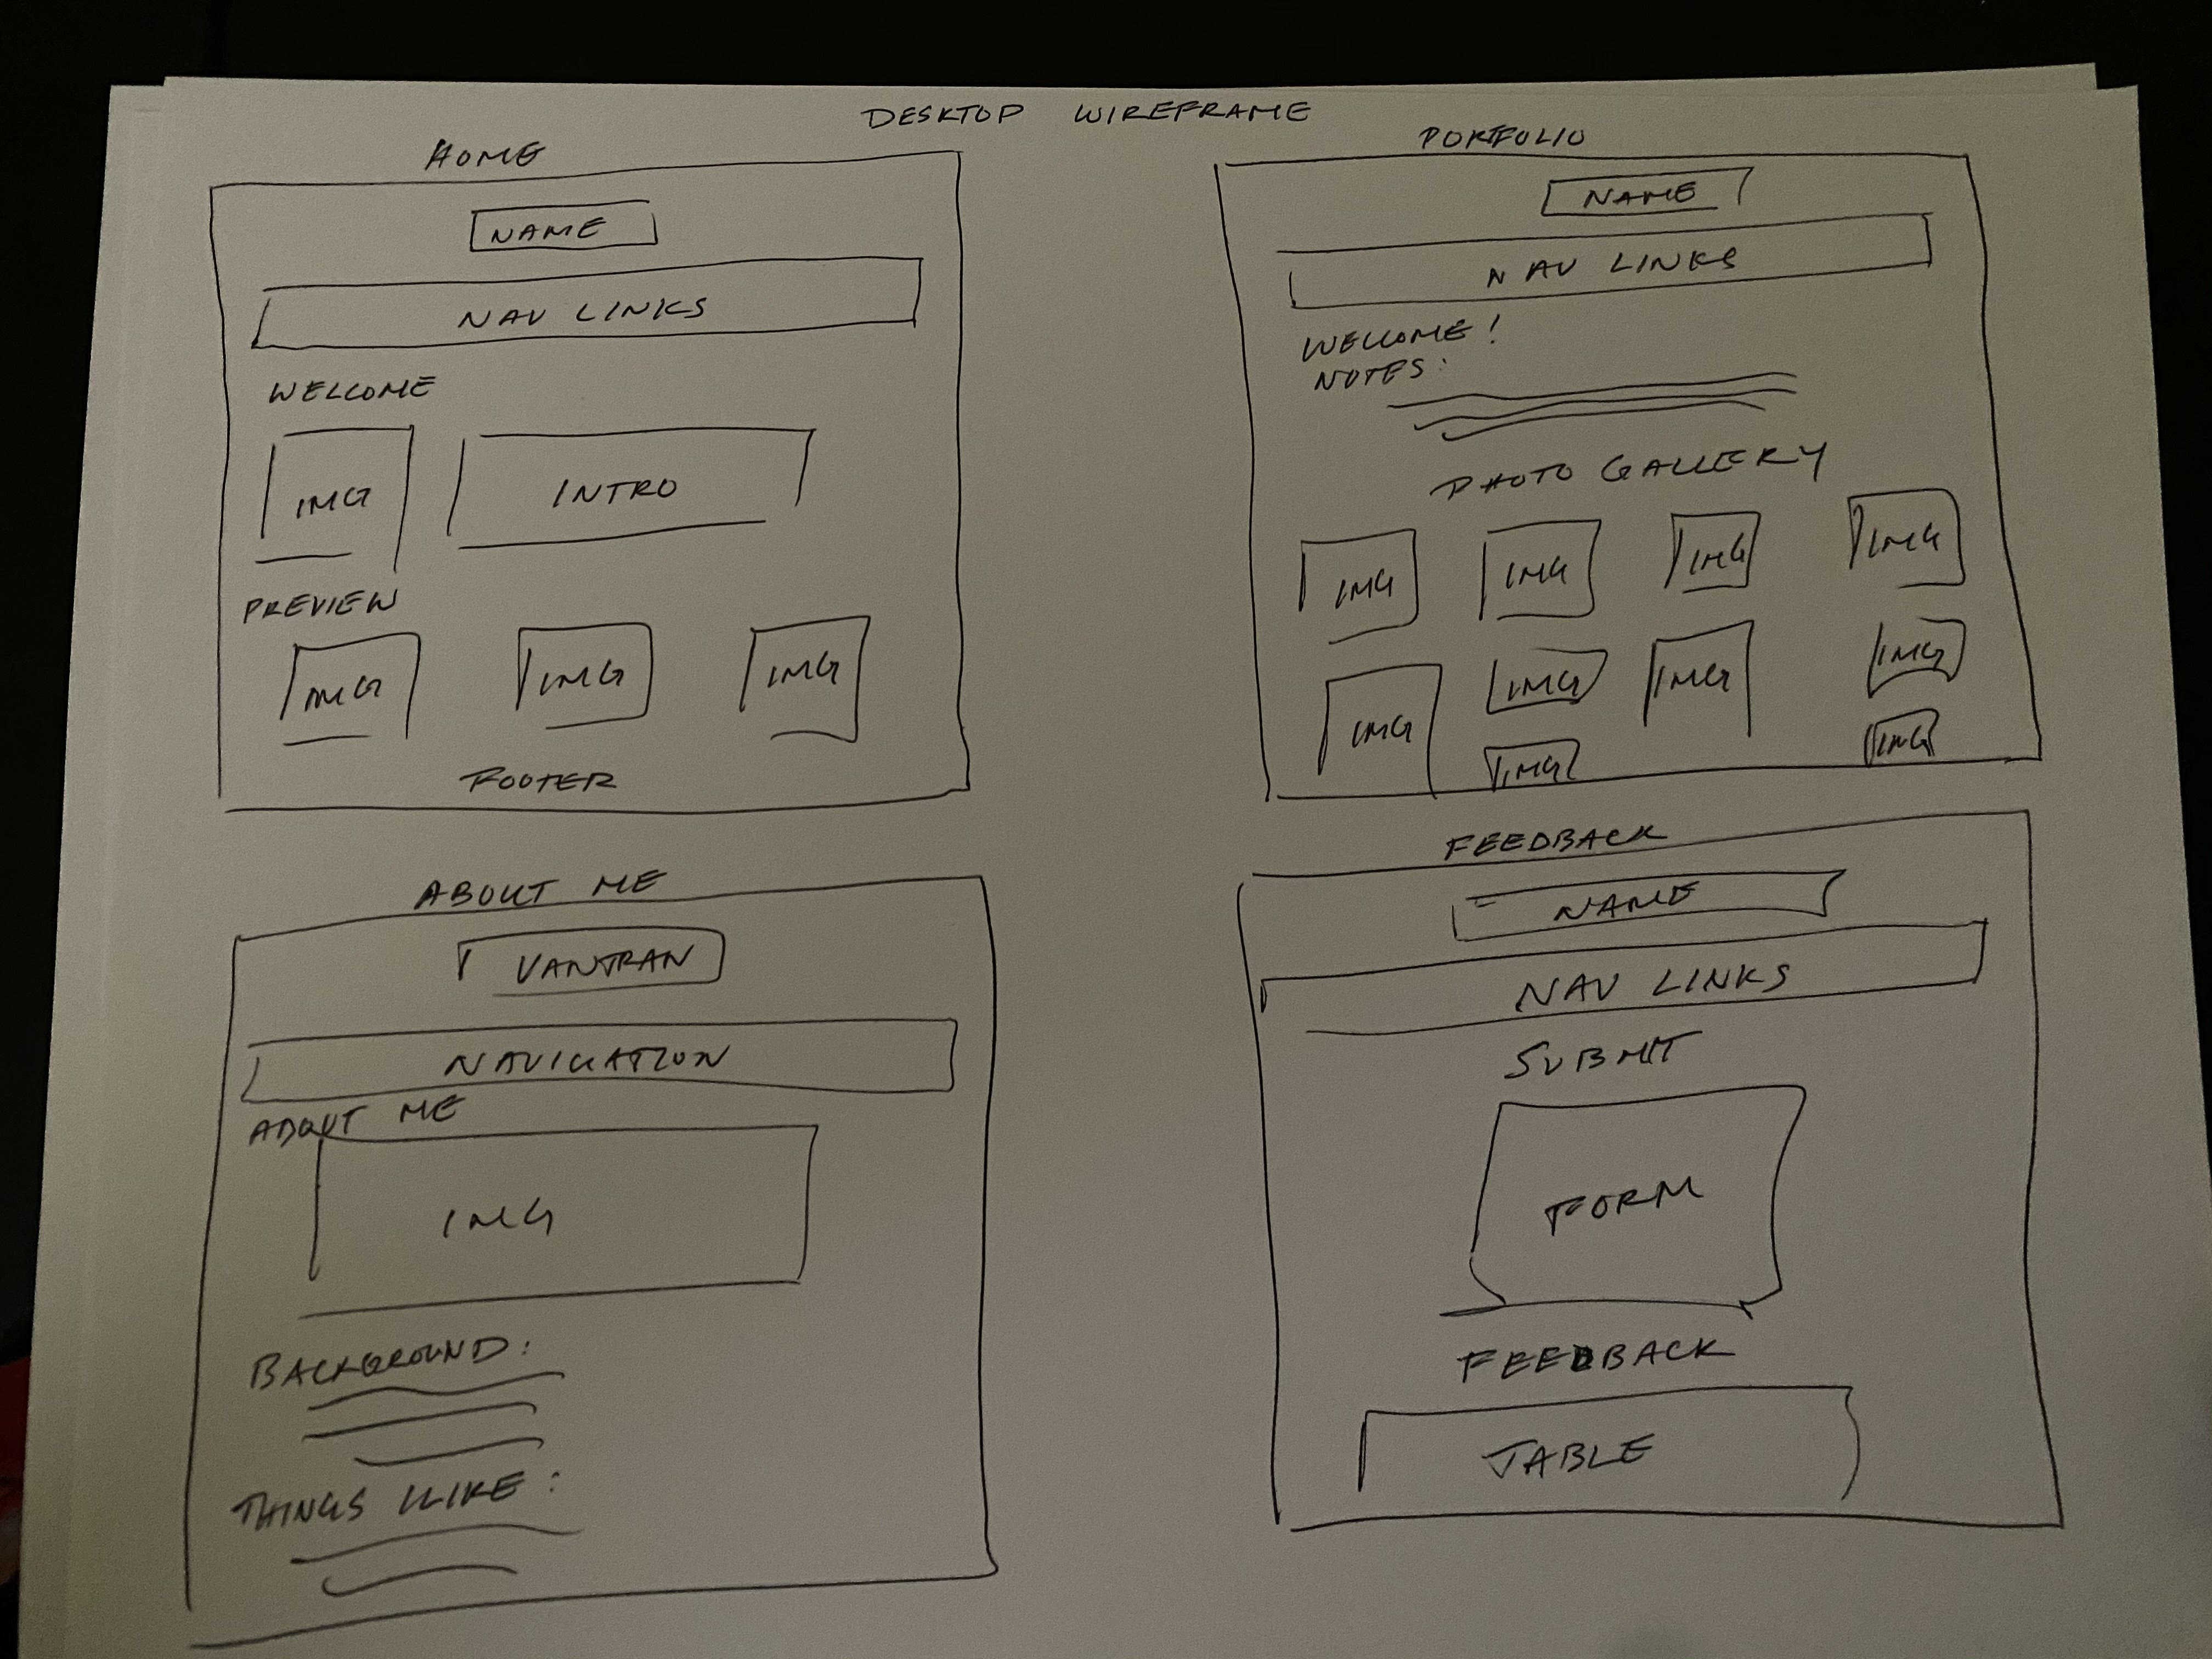 DESKTOP WIREFRAME
HOME
NAME
NAV LINKS
WELCOME
IMG
INTRO
PREVIEW
IMG IMG IMG
FOOTER
PORTFOLIO
NAME
NAV LINKS
WELCOME!
NOTES:
PHOTO GALLERY
IMG IMG IMG IMG
IMG IMG IMG IMG
IMG IMG
ABOUT ME
VANTRAN
NAVIGATION
ABOUT ME
IMG
BACKGROUND:
THINGS I LIKE:
FEEDBACK
NAME
NAV LINKS
SUBMIT
FORM
FEEDBACK
TABLE